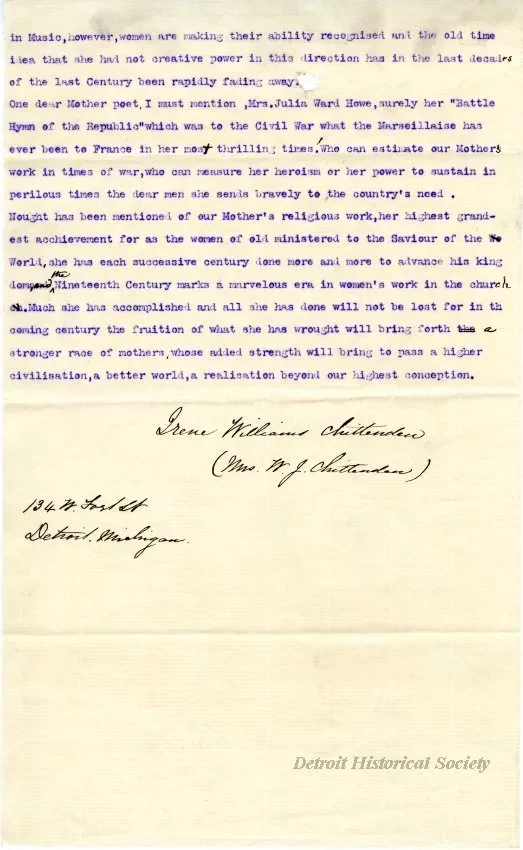 in Music,however,women are making their ability recognised and the old time
idea that she had not creative power in this direction has in the last decades
of the last Century been rapidly fading away.
One dear Mother poet,I must mention ,Mrs.Julia Ward Howe,surely her "Battle
Hymn of the Republic"which was to the Civil War what the Marseillaise has
ever been to France in her most thrilling times!Who can estimate our Mothers
work in times of war,who can measure her heroism or her power to sustain in
perilous times the dear men she sends bravely to the country's need .
Nought has been mentioned of our Mother's religious work,her highest grand-
est acchievement for as the women of old ministered to the Saviour of the Wo
World,she has each successive century done more and more to advance his king
dom,and the Nineteenth Century marks a marvelous era in women's work in the church
ch.Much she has accomplished and all she has done will not be lost for in th
coming century the fruition of what she has wrought will bring forth the a
stronger race of mothers,whose added strength will bring to pass a higher
civilisation,a better world,a realisation beyond our highest conception.
Irene Williams Chittenden
(Mrs. W. J. Chittenden)
134 W. Fort St
Detroit. Michigan.
Detroit Historical Society